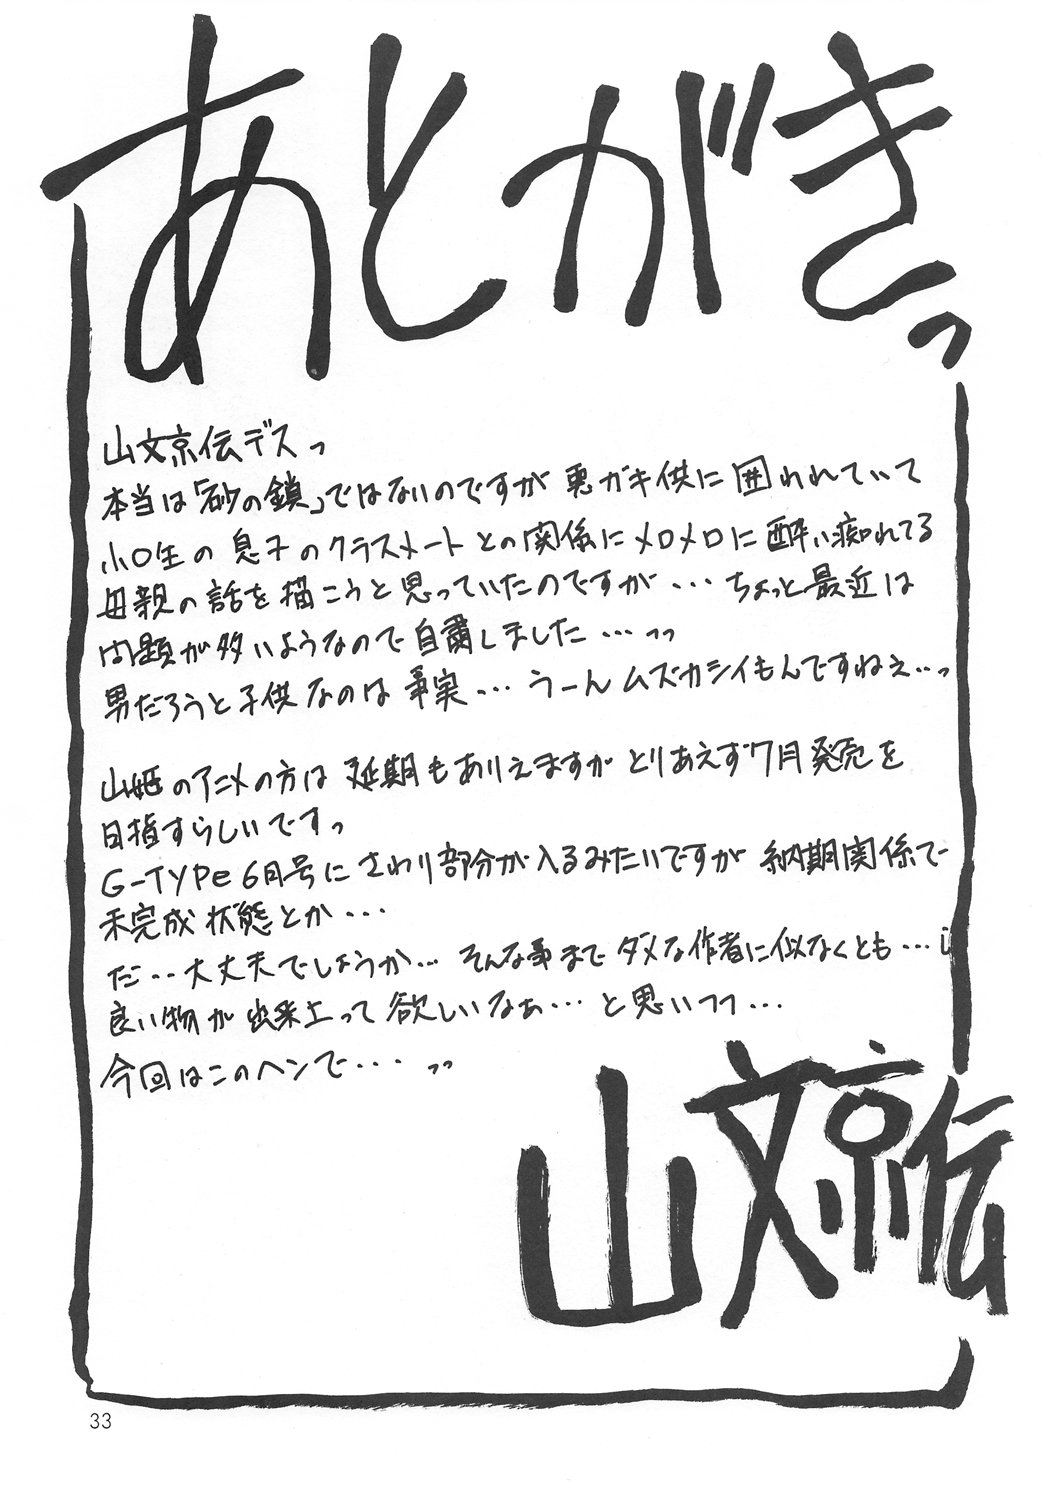 あとがきっ
山文京伝デスっ
本当は「砂の鎖」ではないのですが悪ガキ供に囲われていて
小○生の息子のクラスメートとの関係にメロメロに酔い痴れてる
母親の話を描こうと思っていたのですが…ちょっと最近は
問題が多いようなので自粛しました…っっ
男だろうと子供なのは事実…うーんムズカシイもんですねぇ…っ
山姫のアニメの方は延期もありえますがとりあえず7月発売を
目指すらしいですっ
G-TYPe 6月号にさわり部分が入るみたいですが納期関係で
未完成状態とか…
だ‥大丈夫でしょうか…そんな事までダメな作者に似なくとも…
良い物が出来上って欲しいなぁ…と思いつつ…
今回はこのヘンで…っっ
山文京伝
33